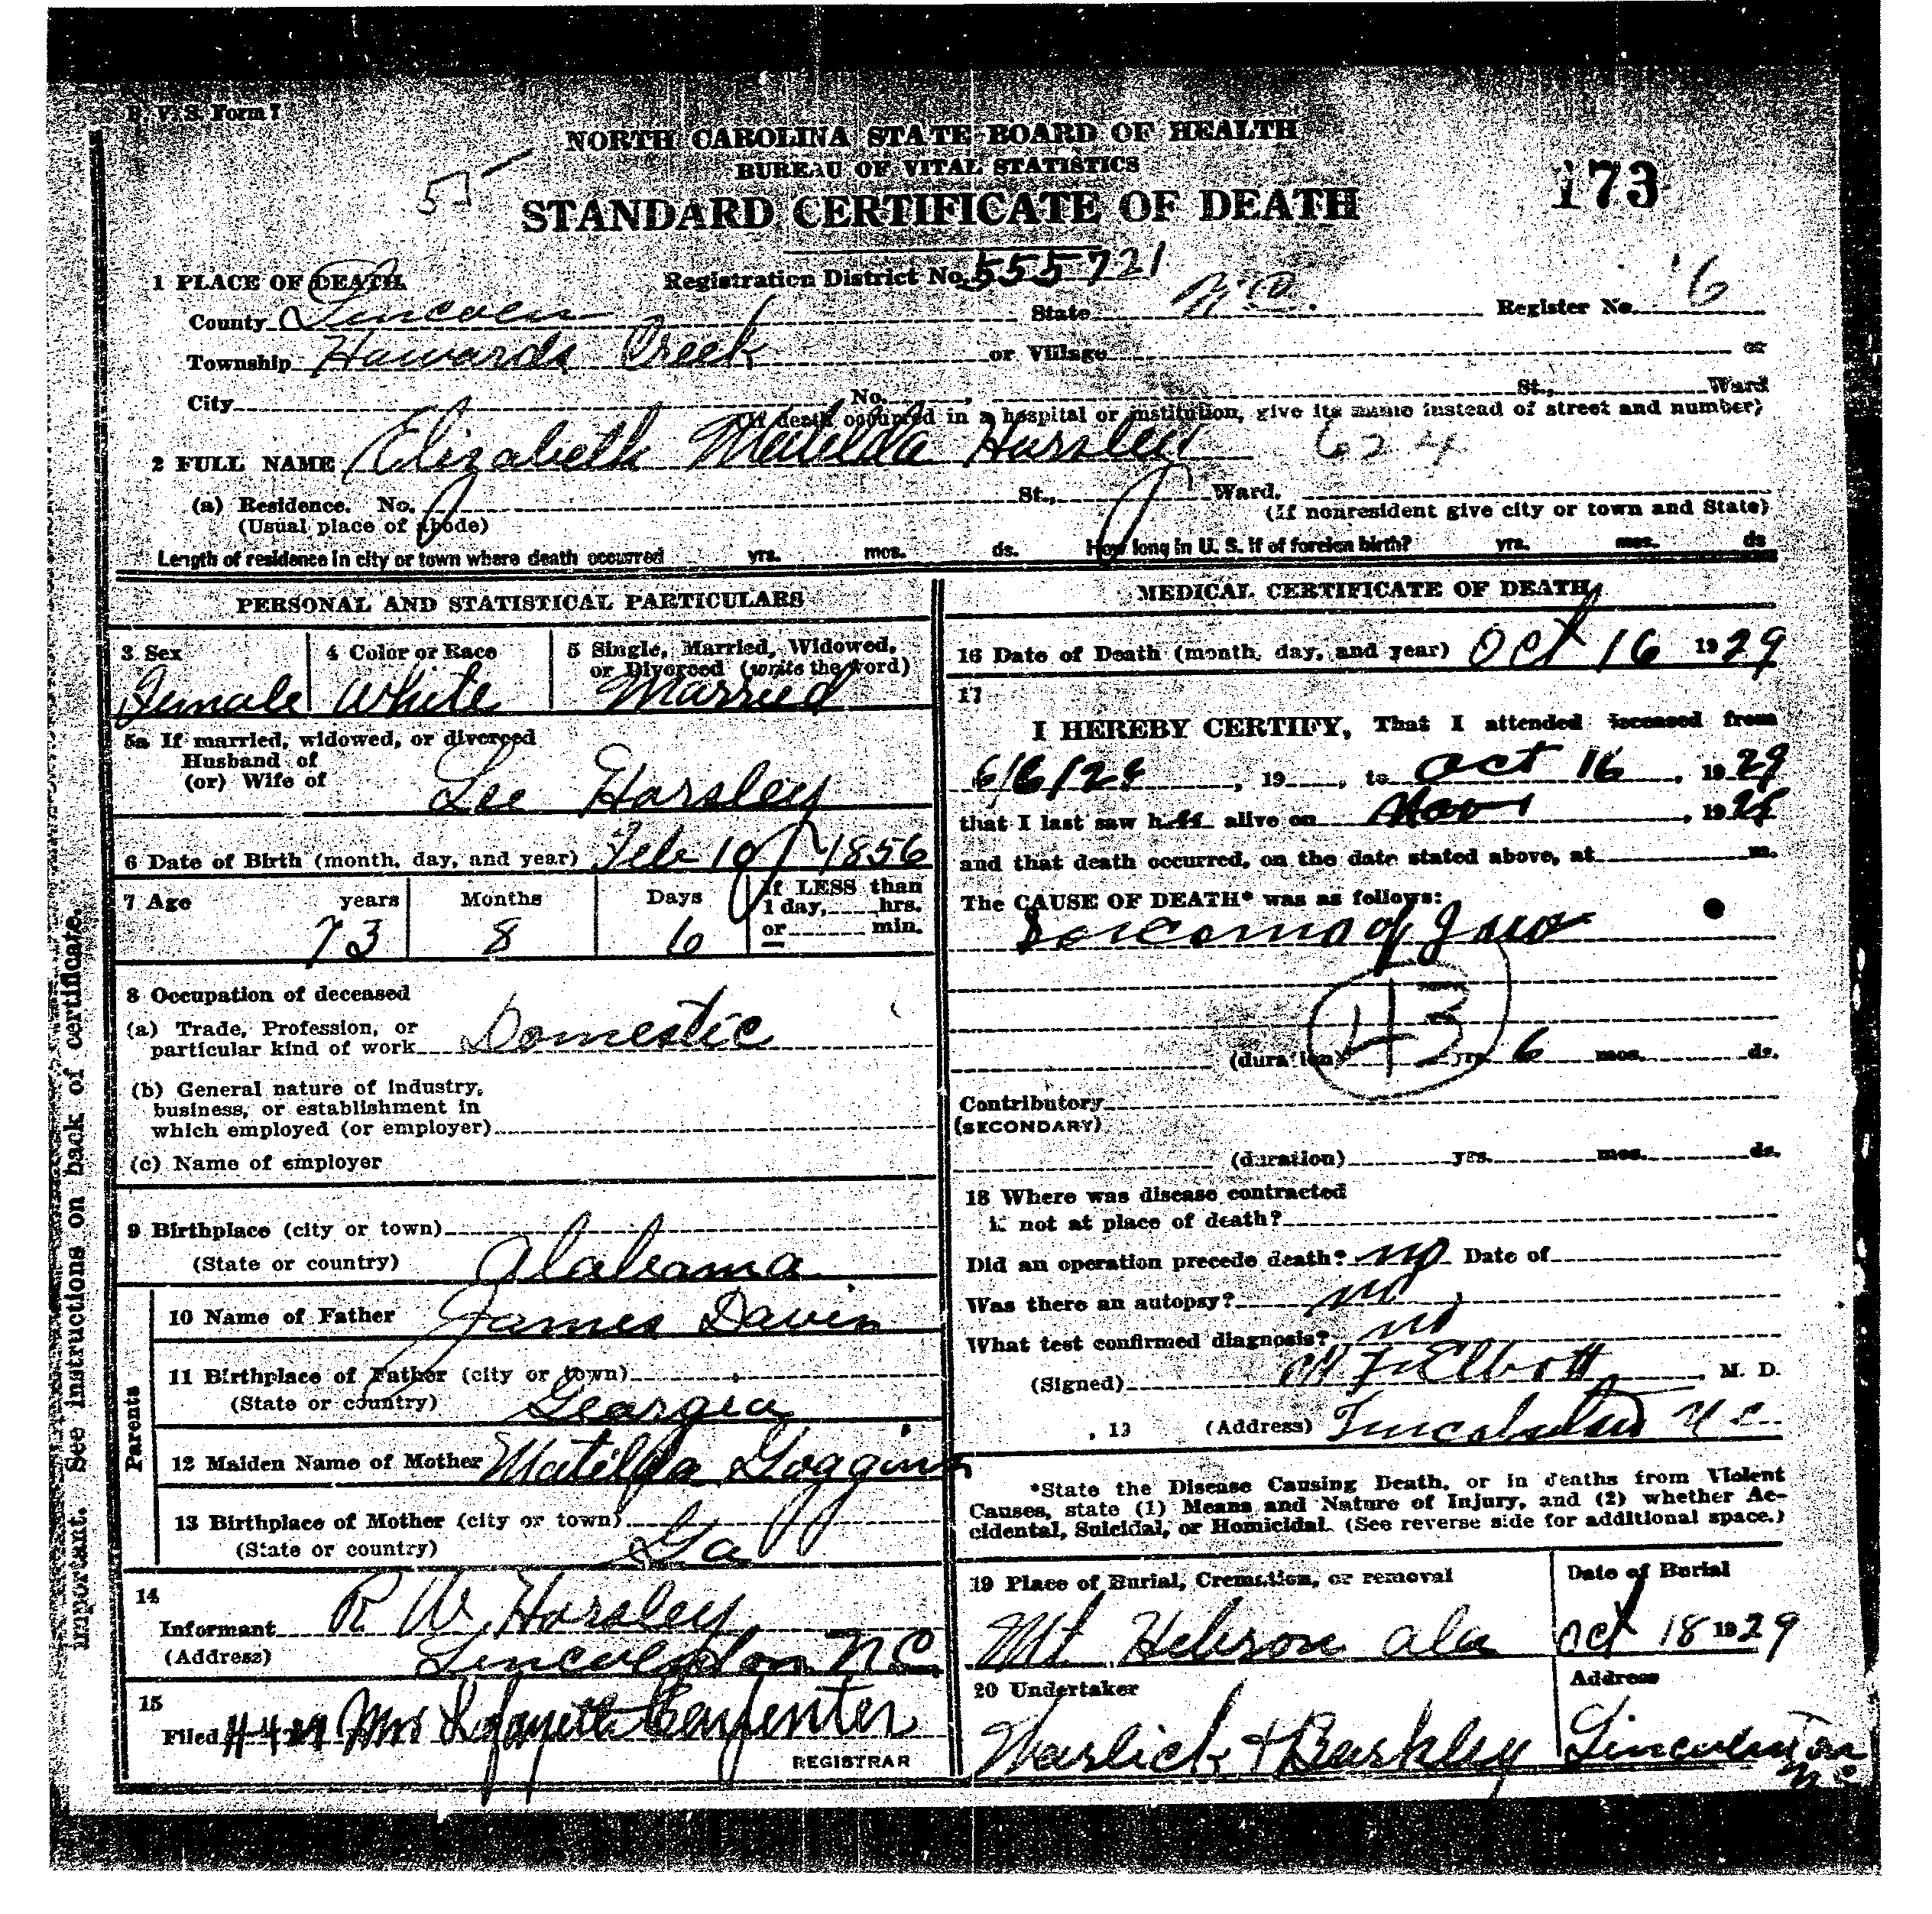 B. V. S. Form 1
NORTH CAROLINA STATE BOARD OF HEALTH
BUREAU OF VITAL STATISTICS
STANDARD CERTIFICATE OF DEATH
173
55
1 PLACE OF DEATH.
Registration District No. 555721
County Lincoln State N.C. Register No. 6
Township Howards Creek or Village or
City No. , St., Ward
(If death occurred in a hospital or institution, give its name instead of street and number)
2 FULL NAME Elizabeth Matilda Hursley 624
(a) Residence. No. St., Ward.
(Usual place of abode) (If nonresident give city or town and State)
Length of residence in city or town where death occurred yrs. mos. ds. How long in U. S. if of foreign birth? yrs. mos. ds
PERSONAL AND STATISTICAL PARTICULARS
3 Sex 4 Color or Race 5 Single, Married, Widowed, or Divorced (write the word)
Female White Married
5a If married, widowed, or divorced
Husband of
(or) Wife of Lee Horsley
6 Date of Birth (month, day, and year) Feb 10 1856
7 Age years Months Days If LESS than
1 day, hrs.
or min.
73 8 6
8 Occupation of deceased
(a) Trade, Profession, or
particular kind of work Domestic
(b) General nature of industry,
business, or establishment in
which employed (or employer)
(c) Name of employer
9 Birthplace (city or town)
(State or country) Alabama
Parents
10 Name of Father James Davis
11 Birthplace of Father (city or town)
(State or country) Georgia
12 Maiden Name of Mother Matilda Goggins
13 Birthplace of Mother (city or town)
(State or country) Ga
14
Informant R W Horsley
(Address) Lincolnton NC
15
Filed Mrs Carpenter
REGISTRAR
MEDICAL CERTIFICATE OF DEATH
16 Date of Death (month, day, and year) Oct 16 1929
17
I HEREBY CERTIFY, That I attended deceased from
6/6/ , 19 , to Oct 16 , 1929
that I last saw h alive on Nov 1 , 19
and that death occurred, on the date stated above, at m.
The CAUSE OF DEATH* was as follows:
Sarcoma of Jaw
43
(duration) yrs. 6 mos. ds.
Contributory
(SECONDARY)
(duration) yrs. mos. ds.
18 Where was disease contracted
if not at place of death?
Did an operation precede death? no Date of
Was there an autopsy? no
What test confirmed diagnosis? no
(Signed) , M. D.
, 19 (Address) Lincolnton N C
*State the Disease Causing Death, or in deaths from Violent
Causes, state (1) Means and Nature of Injury, and (2) whether Ac-
cidental, Suicidal, or Homicidal. (See reverse side for additional space.)
19 Place of Burial, Cremation, or removal Date of Burial
Mt Hebron Ala Oct 18 1929
20 Undertaker Address
Warlick & Barkley Lincolnton
N C
important. See instructions on back of certificate.